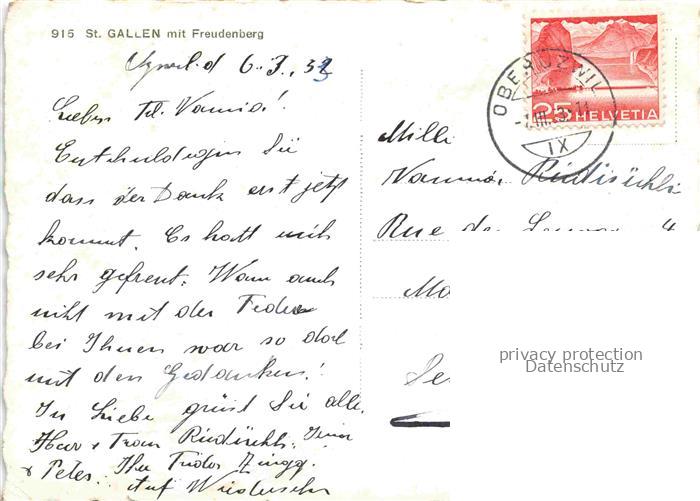 915 St. GALLEN mit Freudenberg
6.3.
Liebe Frl. Vannia!
Entschuldigen Sie
dass der Dank erst jetzt
kommt. Es hatt mich
sehr gefreut. Wenn auch
nicht mit der Feder
bei Ihnen war so doch
mit den Gedanken!
In Liebe grüst Sie alle,
Herr + Frau Rindisüchli.
+ Peter. Ihr Fridor Zingg.
Auf Wiedersehn
25 HELVETIA
OBERUZWIL
IX
Milli
Vannia Rindisüchli
Rue de 4
privacy protection
Datenschutz